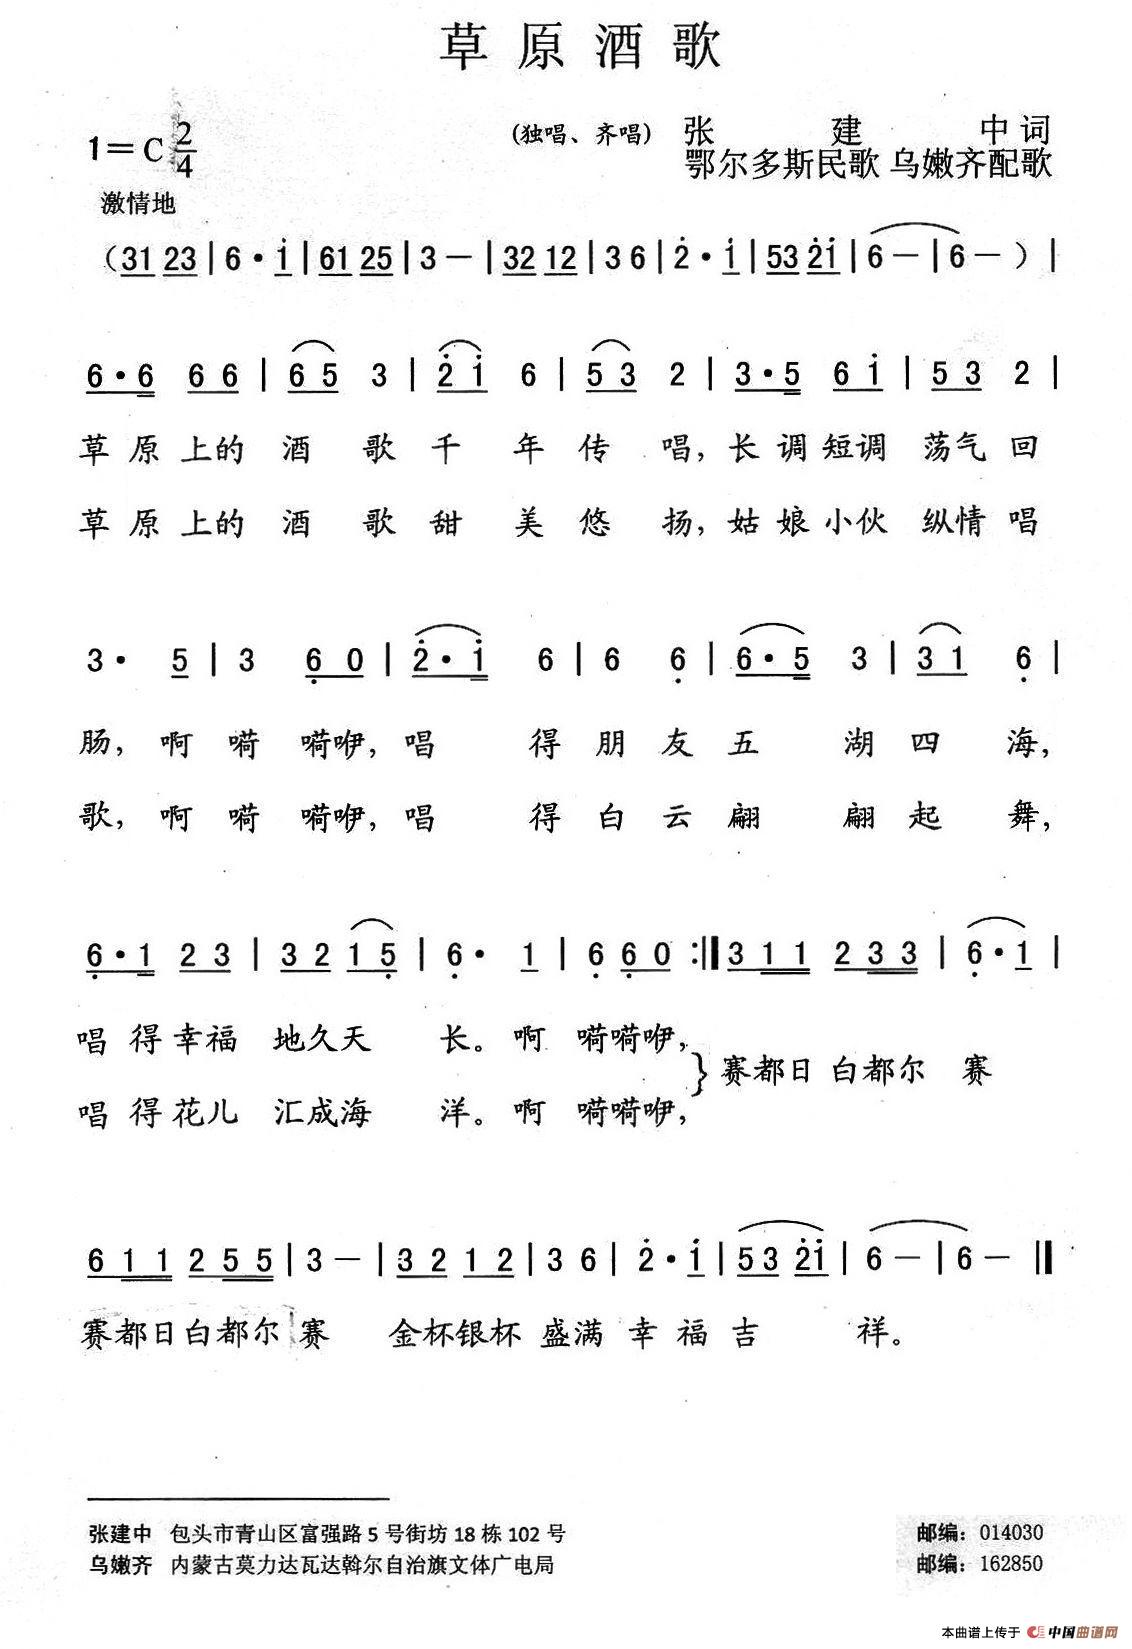 草原酒歌
1=C 2/4
(独唱、齐唱) 张建中词
鄂尔多斯民歌 乌嫩齐配歌
激情地
(31 23 | 6·i̇ | 61 25 | 3 — | 32 12 | 3 6 | 2̇·i̇ | 53 2̇i̇ | 6 — | 6 — ) |
6·6 6 6 | 6 5 3 | 2̇ i̇ 6 | 5 3 2 | 3·5 6 i̇ | 5 3 2 |
草原上的酒歌千年传唱,长调短调荡气回
草原上的酒歌甜美悠扬,姑娘小伙纵情唱
3· 5 | 3 6̣ 0 | 2̇·i̇ 6 | 6 6̣ | 6·5 3 | 3 1 6̣ |
肠,啊嗬嗬咿,唱得朋友五湖四海,
歌,啊嗬嗬咿,唱得白云翩翩起舞,
6̣·1 2 3 | 3 2 1 5̣ | 6̣· 1 | 6̣ 6̣ 0 :‖ 3 1 1 2 3 3 | 6̣·1 |
唱得幸福地久天长。啊嗬嗬咿,
} 赛都日白都尔赛
唱得花儿汇成海洋。啊嗬嗬咿,
6 1 1 2 5 5 | 3 — | 3 2 1 2 | 3 6 | 2̇·i̇ | 53 2̇i̇ | 6 — | 6 — ‖
赛都日白都尔赛 金杯银杯盛满幸福吉祥。
张建中 包头市青山区富强路5号街坊18栋102号 邮编:014030
乌嫩齐 内蒙古莫力达瓦达斡尔自治旗文体广电局 邮编:162850
本曲谱上传于 中国曲谱网